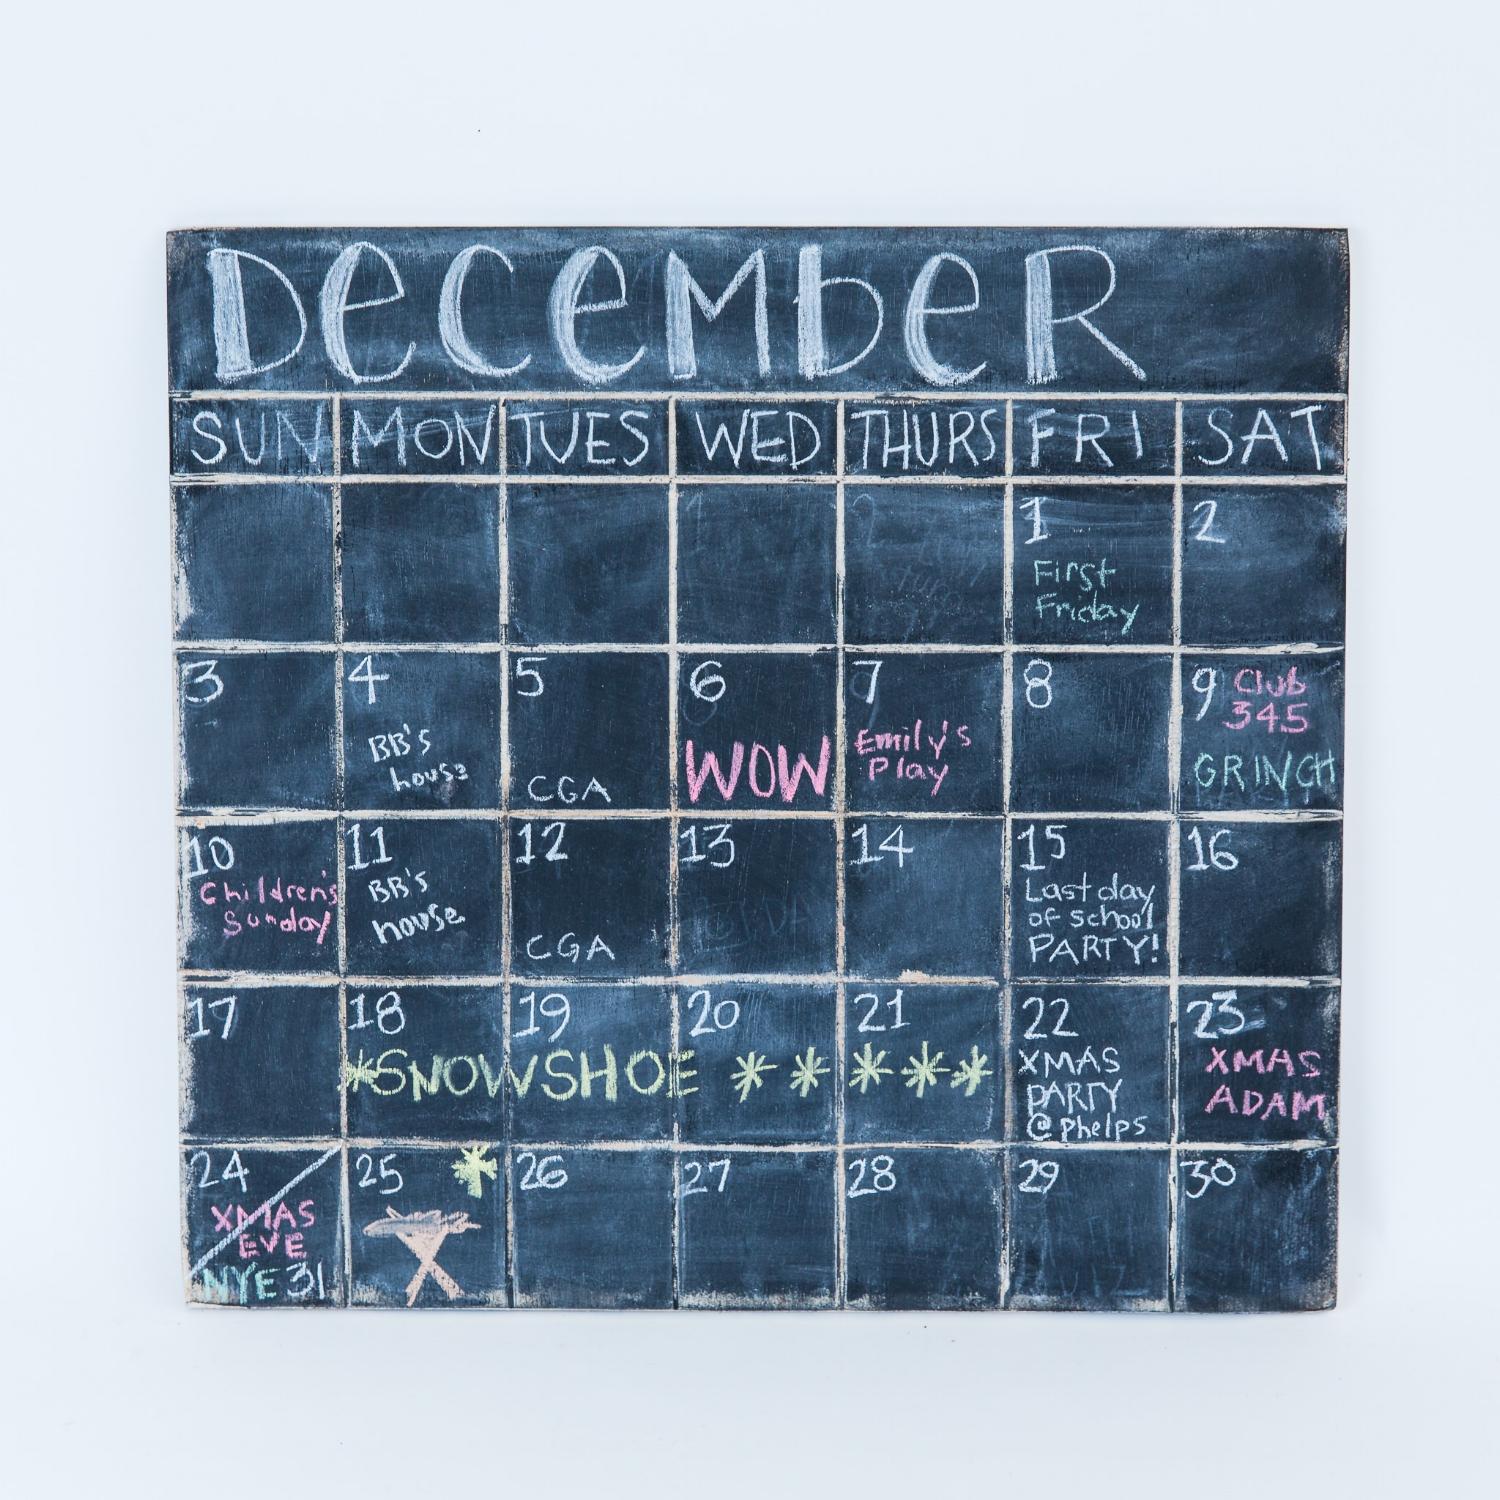 DeceMbeR
SUN MON TUES WED THURS FRI SAT
1 2
First
Friday
3 4 5 6 7 8 9 Club
345
BB's
house
CGA
WOW
Emily's
Play
GRINCH
10 11 12 13 14 15 16
Children's
Sunday
BB's
house
CGA
Last day
of school
PARTY!
17 18 19 20 21 22 23
*SNOWSHOE * * * * *
XMAS
PARTY
@ Phelps
XMAS
ADAM
24 25 26 27 28 29 30
XMAS
EVE
NYE 31